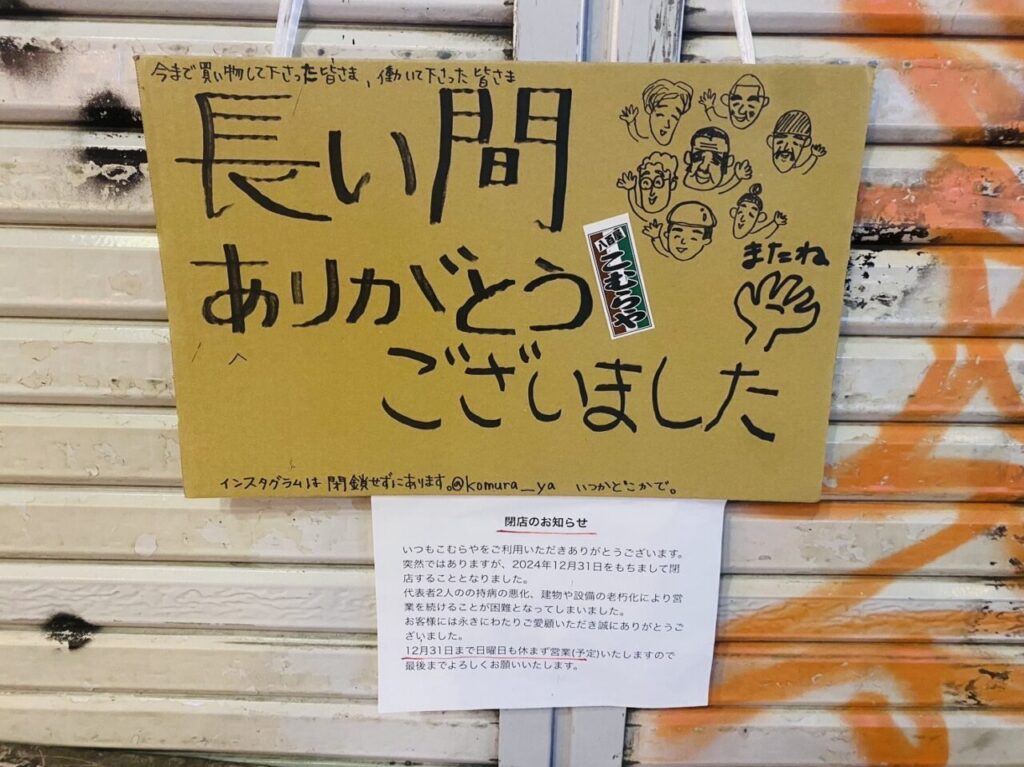 今まで買い物して下さった皆さま、働いて下さった皆さま
長い間
ありがとう
ございました
八百屋
こむらや
またね
インスタグラムは閉鎖せずにあります。@komura_ya いつかどこかで。
閉店のお知らせ
いつもこむらやをご利用いただきありがとうございます。
突然ではありますが、2024年12月31日をもちまして閉
店することとなりました。
代表者2人のの持病の悪化、建物や設備の老朽化により営
業を続けることが困難となってしまいました。
お客様には永きにわたりご愛顧いただき誠にありがとうご
ざいました。
12月31日まで日曜日も休まず営業(予定)いたしますので
最後までよろしくお願いいたします。